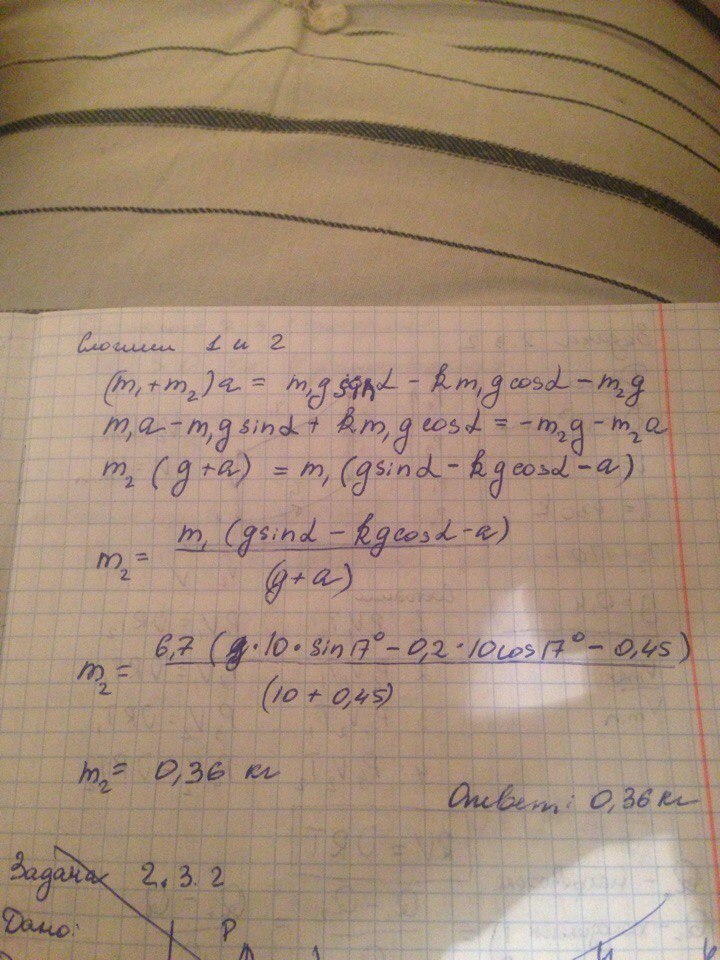 Сложим 1 и 2
(m₁+m₂)a = m₁g sinα - km₁g cosα - m₂g
m₁a - m₁g sinα + km₁g cosα = -m₂g - m₂a
m₂(g+a) = m₁(g sinα - kg cosα - a)
m₂ = m₁(g sinα - kg cosα - a)
(g+a)
m₂ = 6,7 (·10·sin17° - 0,2·10cos17° - 0,45)
(10 + 0,45)
m₂ = 0,36 кг
Ответ: 0,36 кг
Задача 2.3.2
Дано:
P